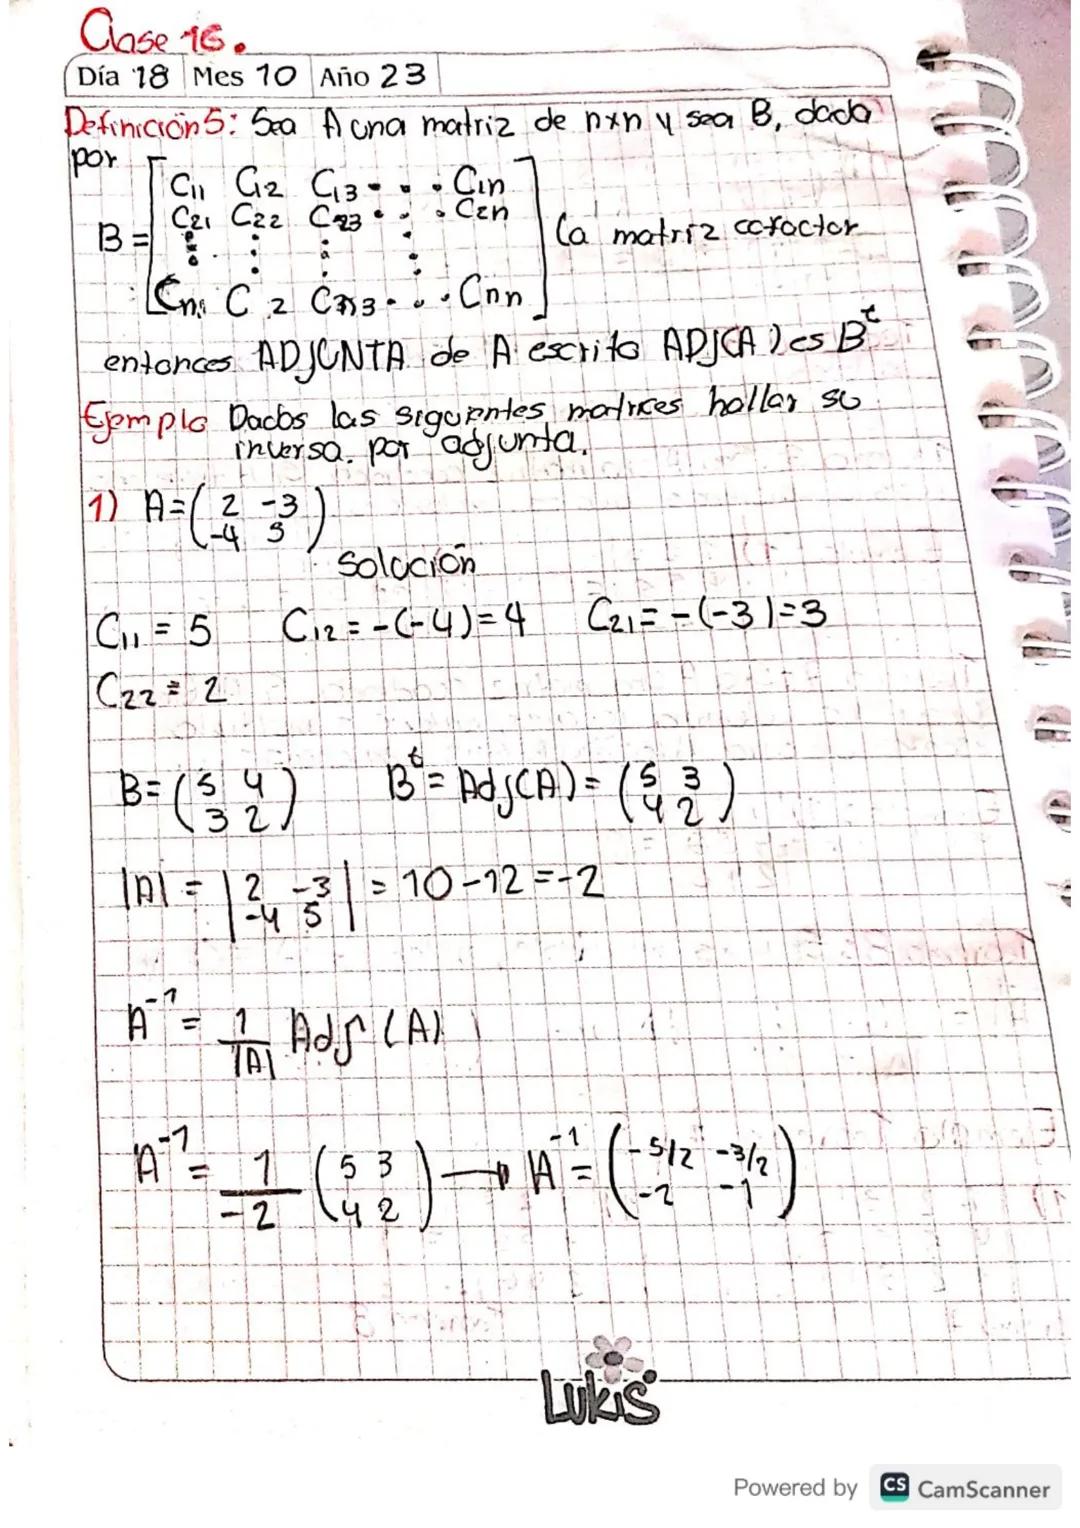 Clase 16.
Día 18 Mes 10 Año 23
Definición 5: Sea A una matriz de nxn y sea B, dada
por
B = [ C11 C12 C13 . . . C1n
C21 C22 C23 . . . C2n
Cn1 C 2 Cn3 . . . Cnn ] la matriz cofactor
entonces ADJUNTA de A escrito ADJ(A) es Bᵗ
Ejemplo Dados las siguientes matrices hallar su
inversa. por adjunta.
1) A = ( 2 -3
-4 5 )
Solución
C11 = 5 C12 = -(-4) = 4 C21 = -(-3) = 3
C22 = 2
B = ( 5 4
3 2 ) Bᵗ = Adj(A) = ( 5 3
4 2 )
|A| = | 2 -3
-4 5 | = 10 - 12 = -2
A⁻¹ = 1/|A| Adj (A)
A⁻¹ = 1/-2 ( 5 3
4 2 ) → A⁻¹ = ( -5/2 -3/2
-2 -1 )
Lukis
Powered by CS CamScanner